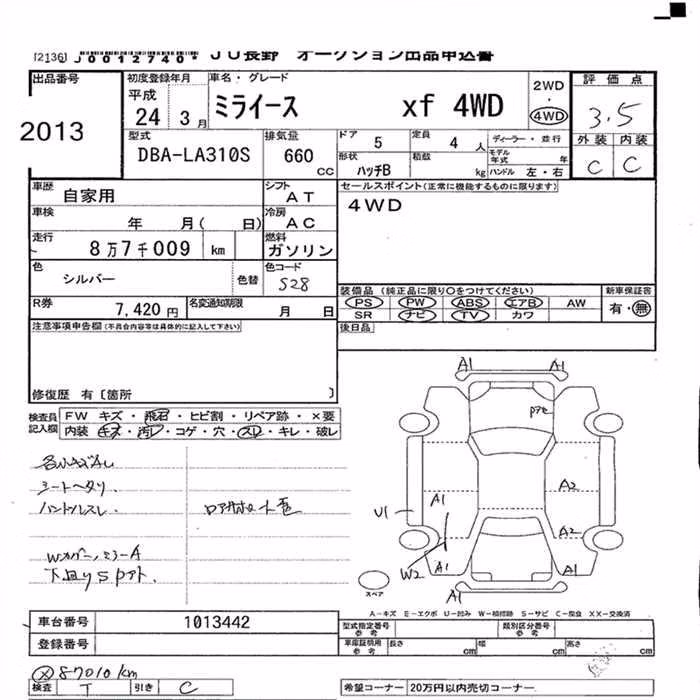 [2136] J0012740* JU長野 オークション出品申込書
出品番号
2013
初度登録年月
平成
24 3月
車名・グレード
ミライース xf 4WD
2WD
・
4WD
評価点
3.5
外装 内装
C C
型式
DBA-LA310S
排気量
660 CC
ドア 5
定員 4 人
ディーラー・並行
モデル年式 年
形状 ハッチB
積載 kg
ハンドル 左・右
車歴 自家用
シフト AT
セールスポイント(正常に機能するものに限ります)
4WD
車検 年 月( 日)
冷房 AC
走行 8万7千009 km
燃料 ガソリン
色 シルバー 色替
色コード S28
R券 7,420円
名変通知期限 月 日
装備品 (純正品に限り○をつけてください)
新車保証書
PS PW ABS エアB AW
有・無
SR ナビ TV カワ
注意事項申告欄(不具合内容等は具体的に記入して下さい)
後日品
修復歴 有〔箇所 〕
検査員記入欄
FW キズ・飛石・ヒビ割・リペア跡・×要
内装 キズ・汚レ・コゲ・穴・スレ・キレ・破レ
シートヘタリ.
ハンドルスレ.
A1 A1
A1
A2
U1
A2
W2
A1 A1
A1
スペア
A-キズ E-エクボ U-凹み W-補修跡 S-サビ C-腐食 XX-交換済
車台番号 1013442
登録番号
型式指定番号 参考
類別区分番号 参考
車庫証明用 参考
長さ cm
幅 cm
高さ cm
ⓧ 87010km
検査 T 引き C
希望コーナー 20万円以内売切コーナー